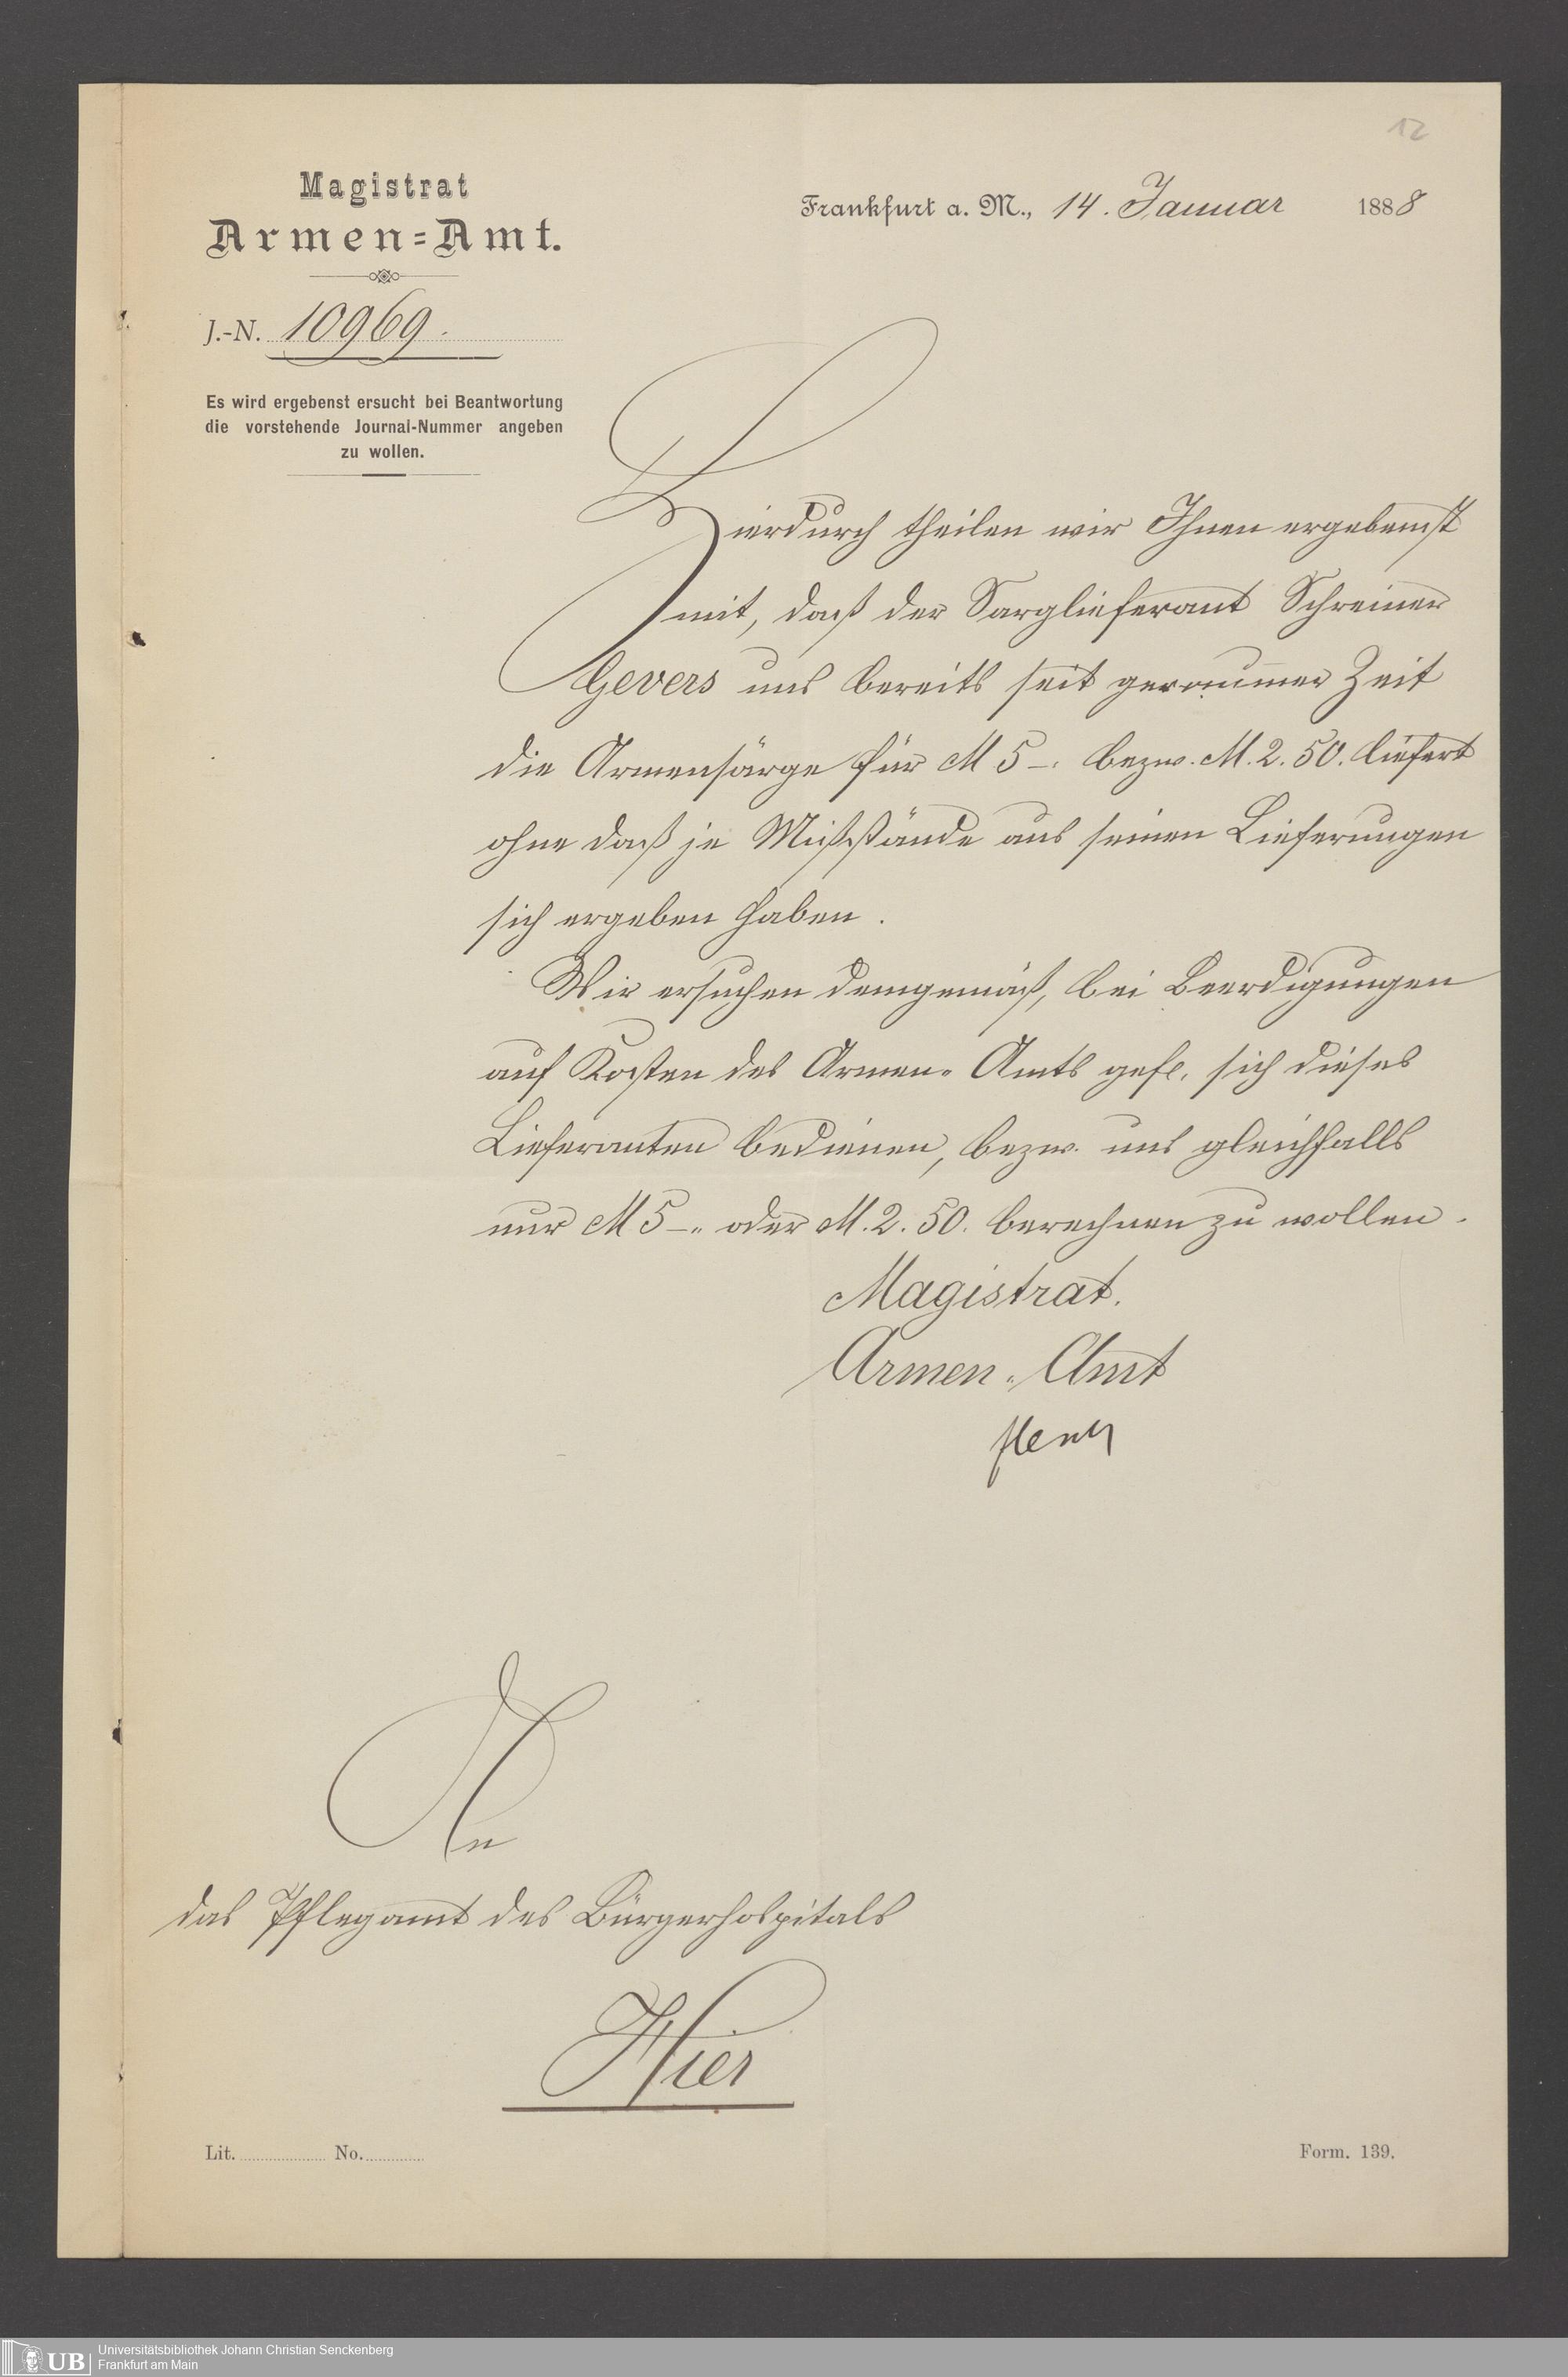 12
Magistrat
Armen=Amt.
Frankfurt a. M., 14. Januar 1888
J.-N. 10969.
Es wird ergebenst ersucht bei Beantwortung
die vorstehende Journal-Nummer angeben
zu wollen.
Hierdurch theilen wir Ihnen ergebenst
mit, daß der Sarglieferant Schreiner
Gevers uns bereits seit geraumer Zeit
die Armensärge für M 5-. bezw. M. 2. 50. liefert
ohne daß je Mißstände aus seinen Lieferungen
sich ergeben haben.
Wir ersuchen demgemäß, bei Beerdigungen
auf Kosten des Armen-Amts gefl. sich dieses
Lieferanten bedienen, bezw. uns gleichfalls
nur M 5-. oder M. 2. 50. berechnen zu wollen.
Magistrat.
Armen-Amt
An
das Pflegamt des Bürgerhospitals
Hier
Lit. No.
Form. 139.
UB Universitätsbibliothek Johann Christian Senckenberg
Frankfurt am Main